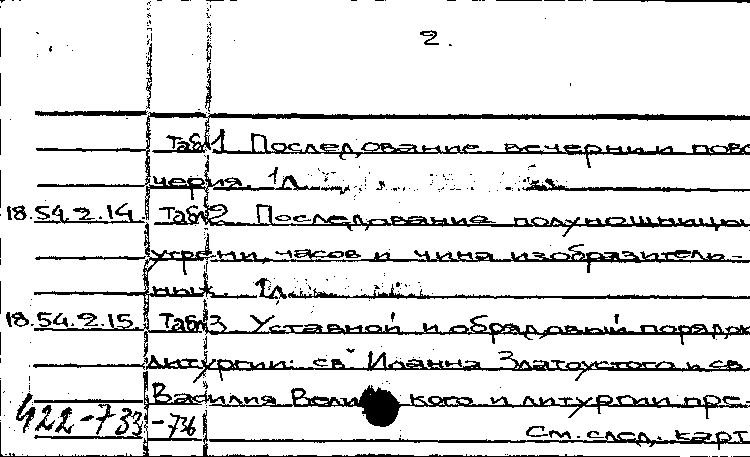 2.
Табл1 Последование вечерни и пове
черия. 1л
18.54.2.14. Табл2 Последование полунощницы
утрени, часов и чина изобразитель-
ных. 1л
18.54.2.15. Табл3 Уставной и обрядовый порядок
литургии: св. Иоанна Златоустого и св
Василия Вели кого и литургии пре-
422-733-736
См. след. карт